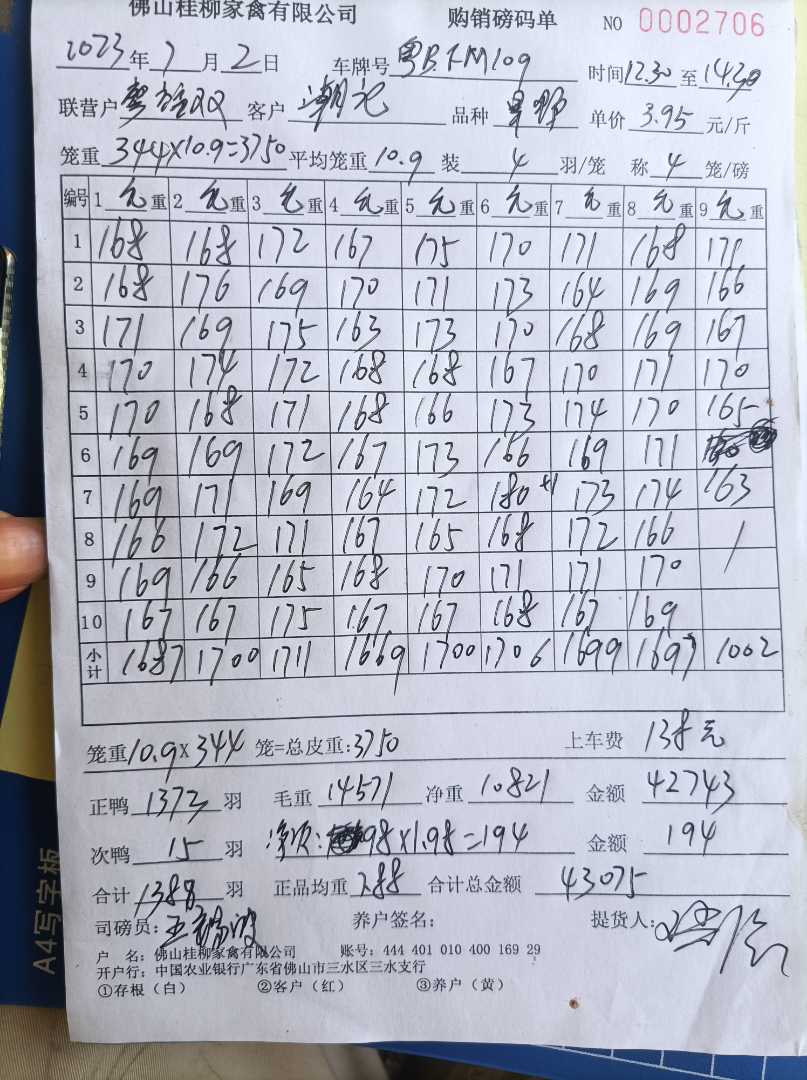 佛山桂柳家禽有限公司 购销磅码单 NO 0002706
2023年7月2日 车牌号 粤B FM109 时间12.30至14.30
联营户 客户 品种 单价 3.95 元/斤
笼重 344×10.9=3750 平均笼重 10.9 装 4 羽/笼 称 4 笼/磅
编号 1毛重 2毛重 3毛重 4毛重 5毛重 6毛重 7毛重 8毛重 9毛重
1 168 168 172 167 175 170 171 168 171
2 168 176 169 170 171 173 164 169 166
3 171 169 175 163 173 170 168 169 167
4 170 174 172 168 168 167 170 171 170
5 170 168 171 168 166 173 174 170 165
6 169 169 172 167 173 166 169 171
7 169 171 169 164 172 180+1 173 174 163
8 166 172 171 167 165 168 172 166 /
9 169 166 165 168 170 171 171 170
10 167 167 175 167 167 168 167 169
小计 1687 1700 1711 1669 1700 1706 1699 1697 1002
笼重 10.9×344 笼=总皮重:3750 上车费 138元
正鸭 1372 羽 毛重 14571 净重 10821 金额 42743
次鸭 15 羽 98×1.98=194 金额 194
合计 羽 正品均重 7.88 合计总金额 43075
司磅员: 养户签名: 提货人:
户 名: 佛山桂柳家禽有限公司 账号: 444 401 010 400 169 29
开户行: 中国农业银行广东省佛山市三水区三水支行
①存根（白） ②客户（红） ③养户（黄）
A4写字板